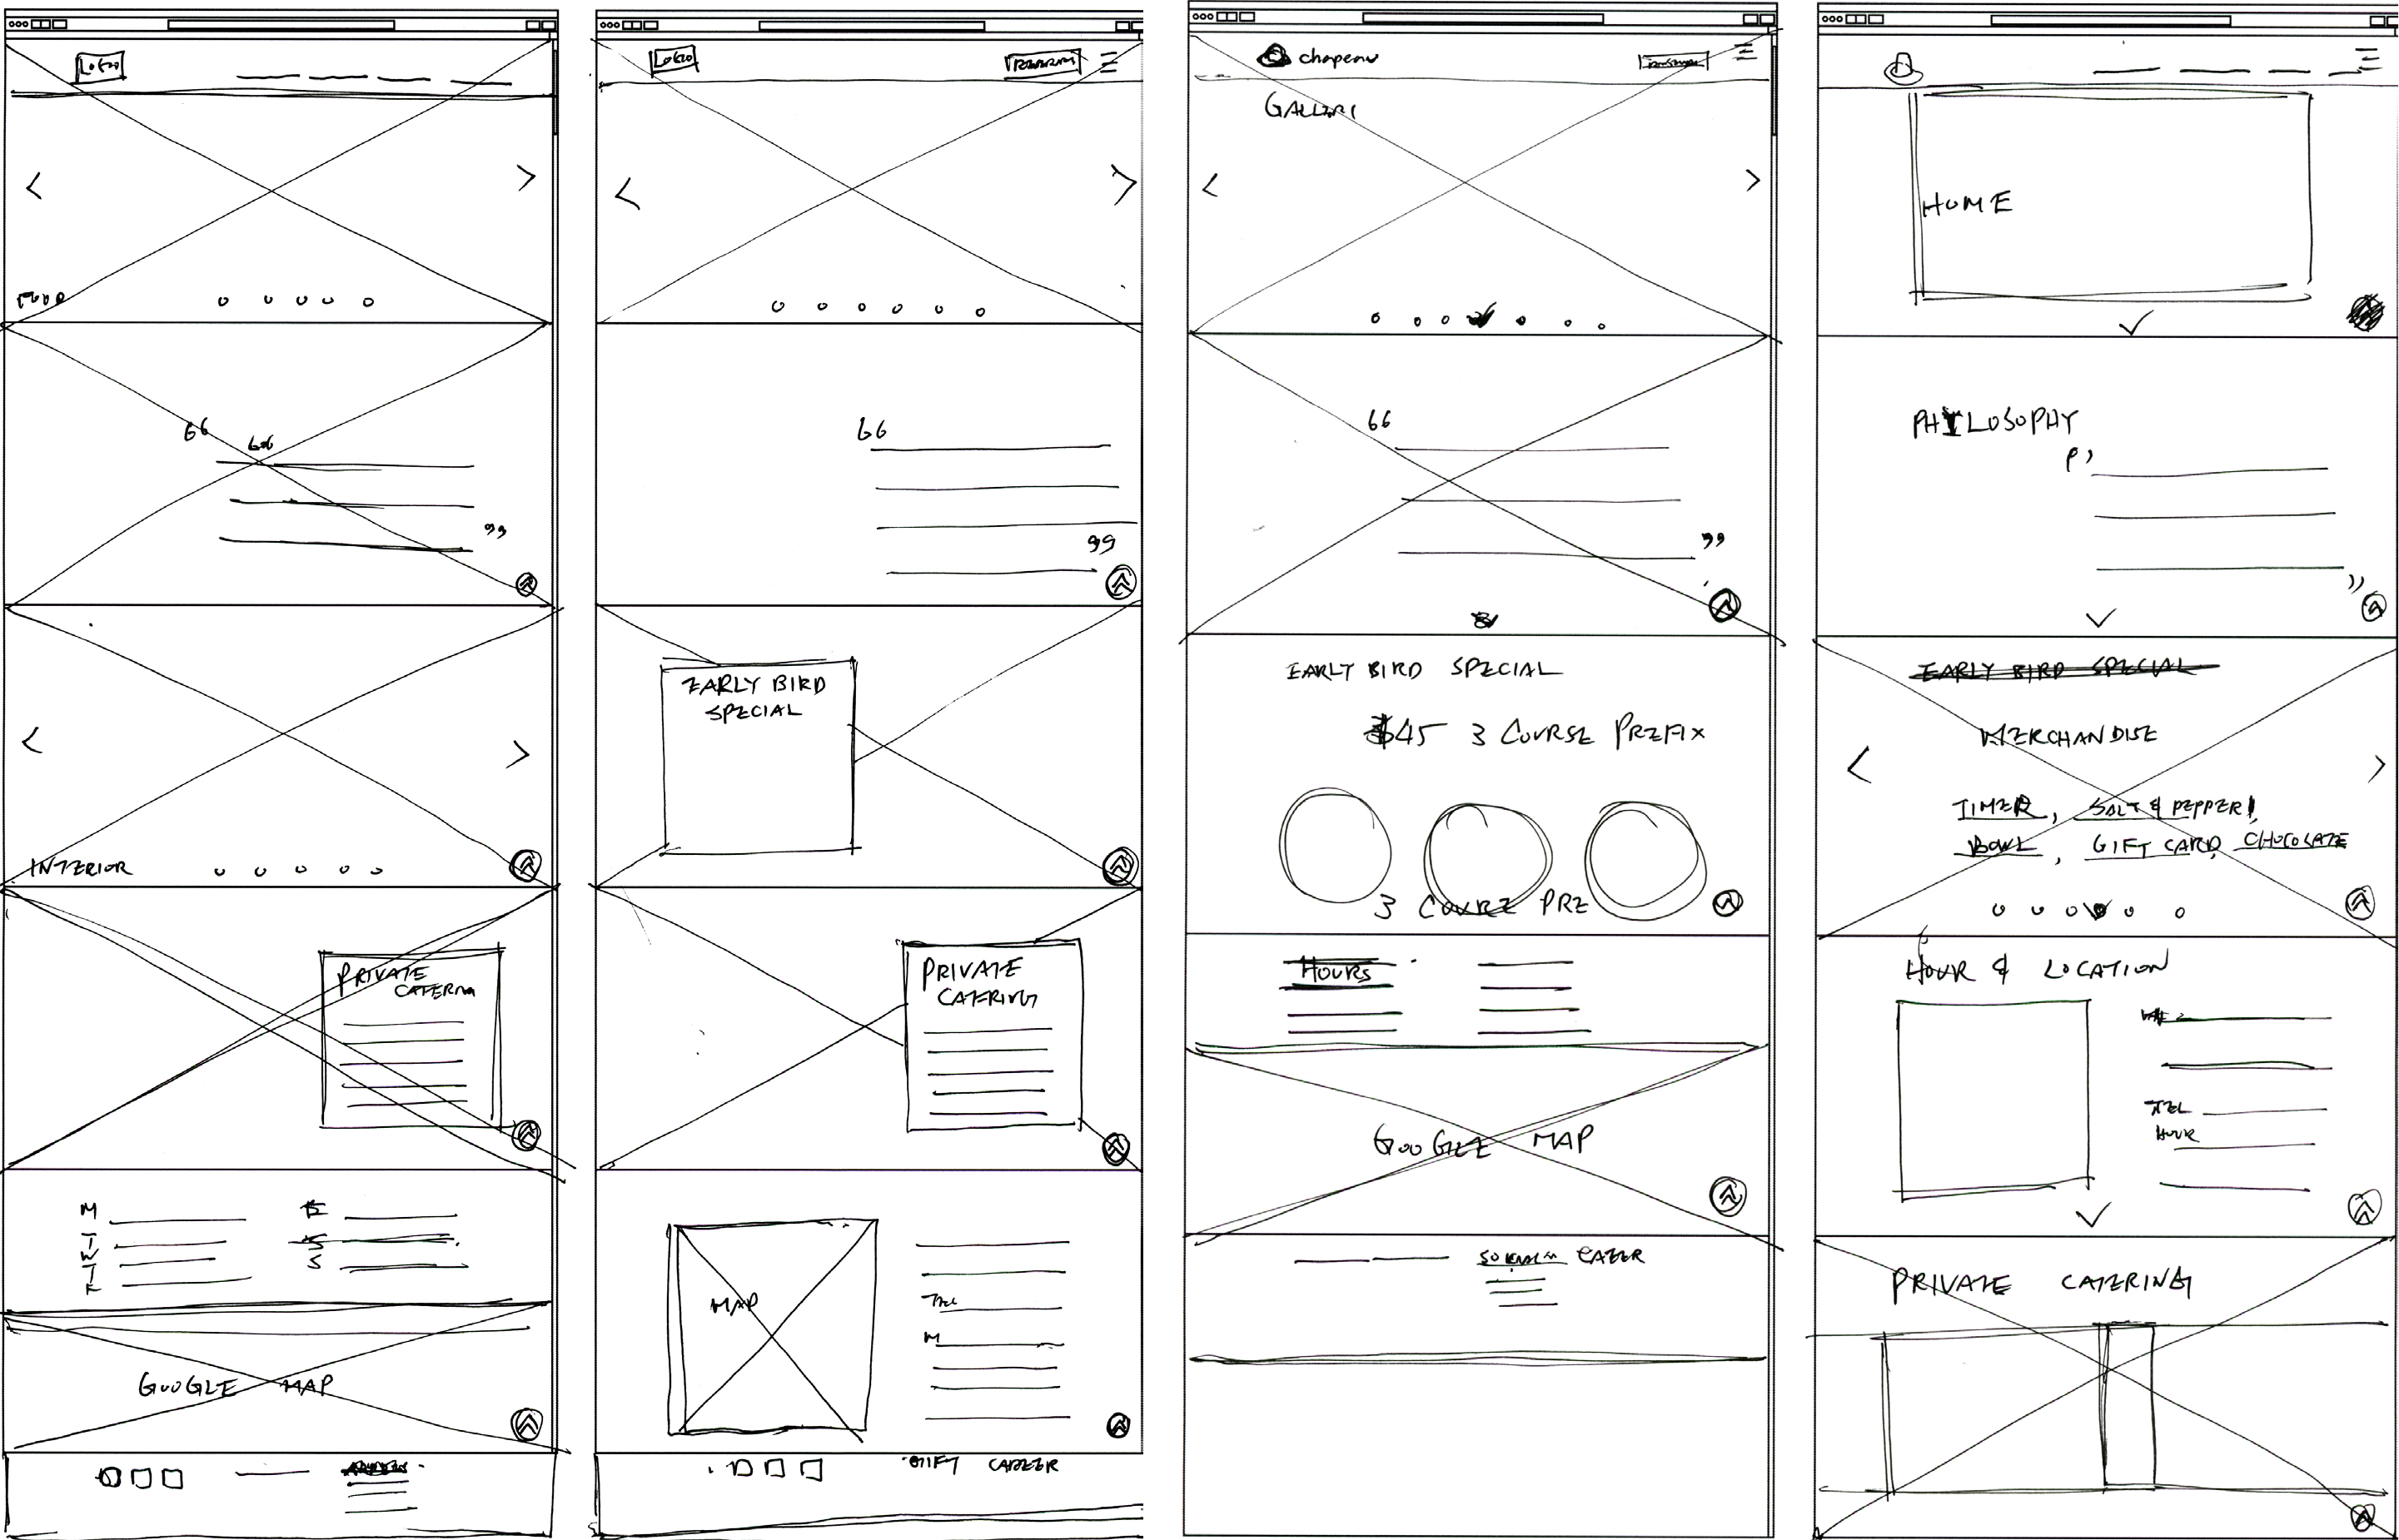 LOGO
< >
FOOD
66
66
99
< >
INTERIOR
PRIVATE
CATERING
M
T
W
T
F
S
S
GOOGLE MAP
LOGO
< >
66
99
EARLY BIRD
SPECIAL
PRIVATE
CATERING
MAP
TEL
M
GIFT CAREER
chapeau
GALLERY
< >
66
99
EARLY BIRD SPECIAL
$45 3 COURSE PREFIX
3 COURZE PRE
HOURS
GOOGLE MAP
HOME
PHILOSOPHY
EARLY BIRD SPECIAL
MERCHANDISE
< >
TIMER, SALT & PEPPER,
BOWL, GIFT CARD, CHOCOLATE
HOUR & LOCATION
TEL
HOUR
PRIVATE CATERING